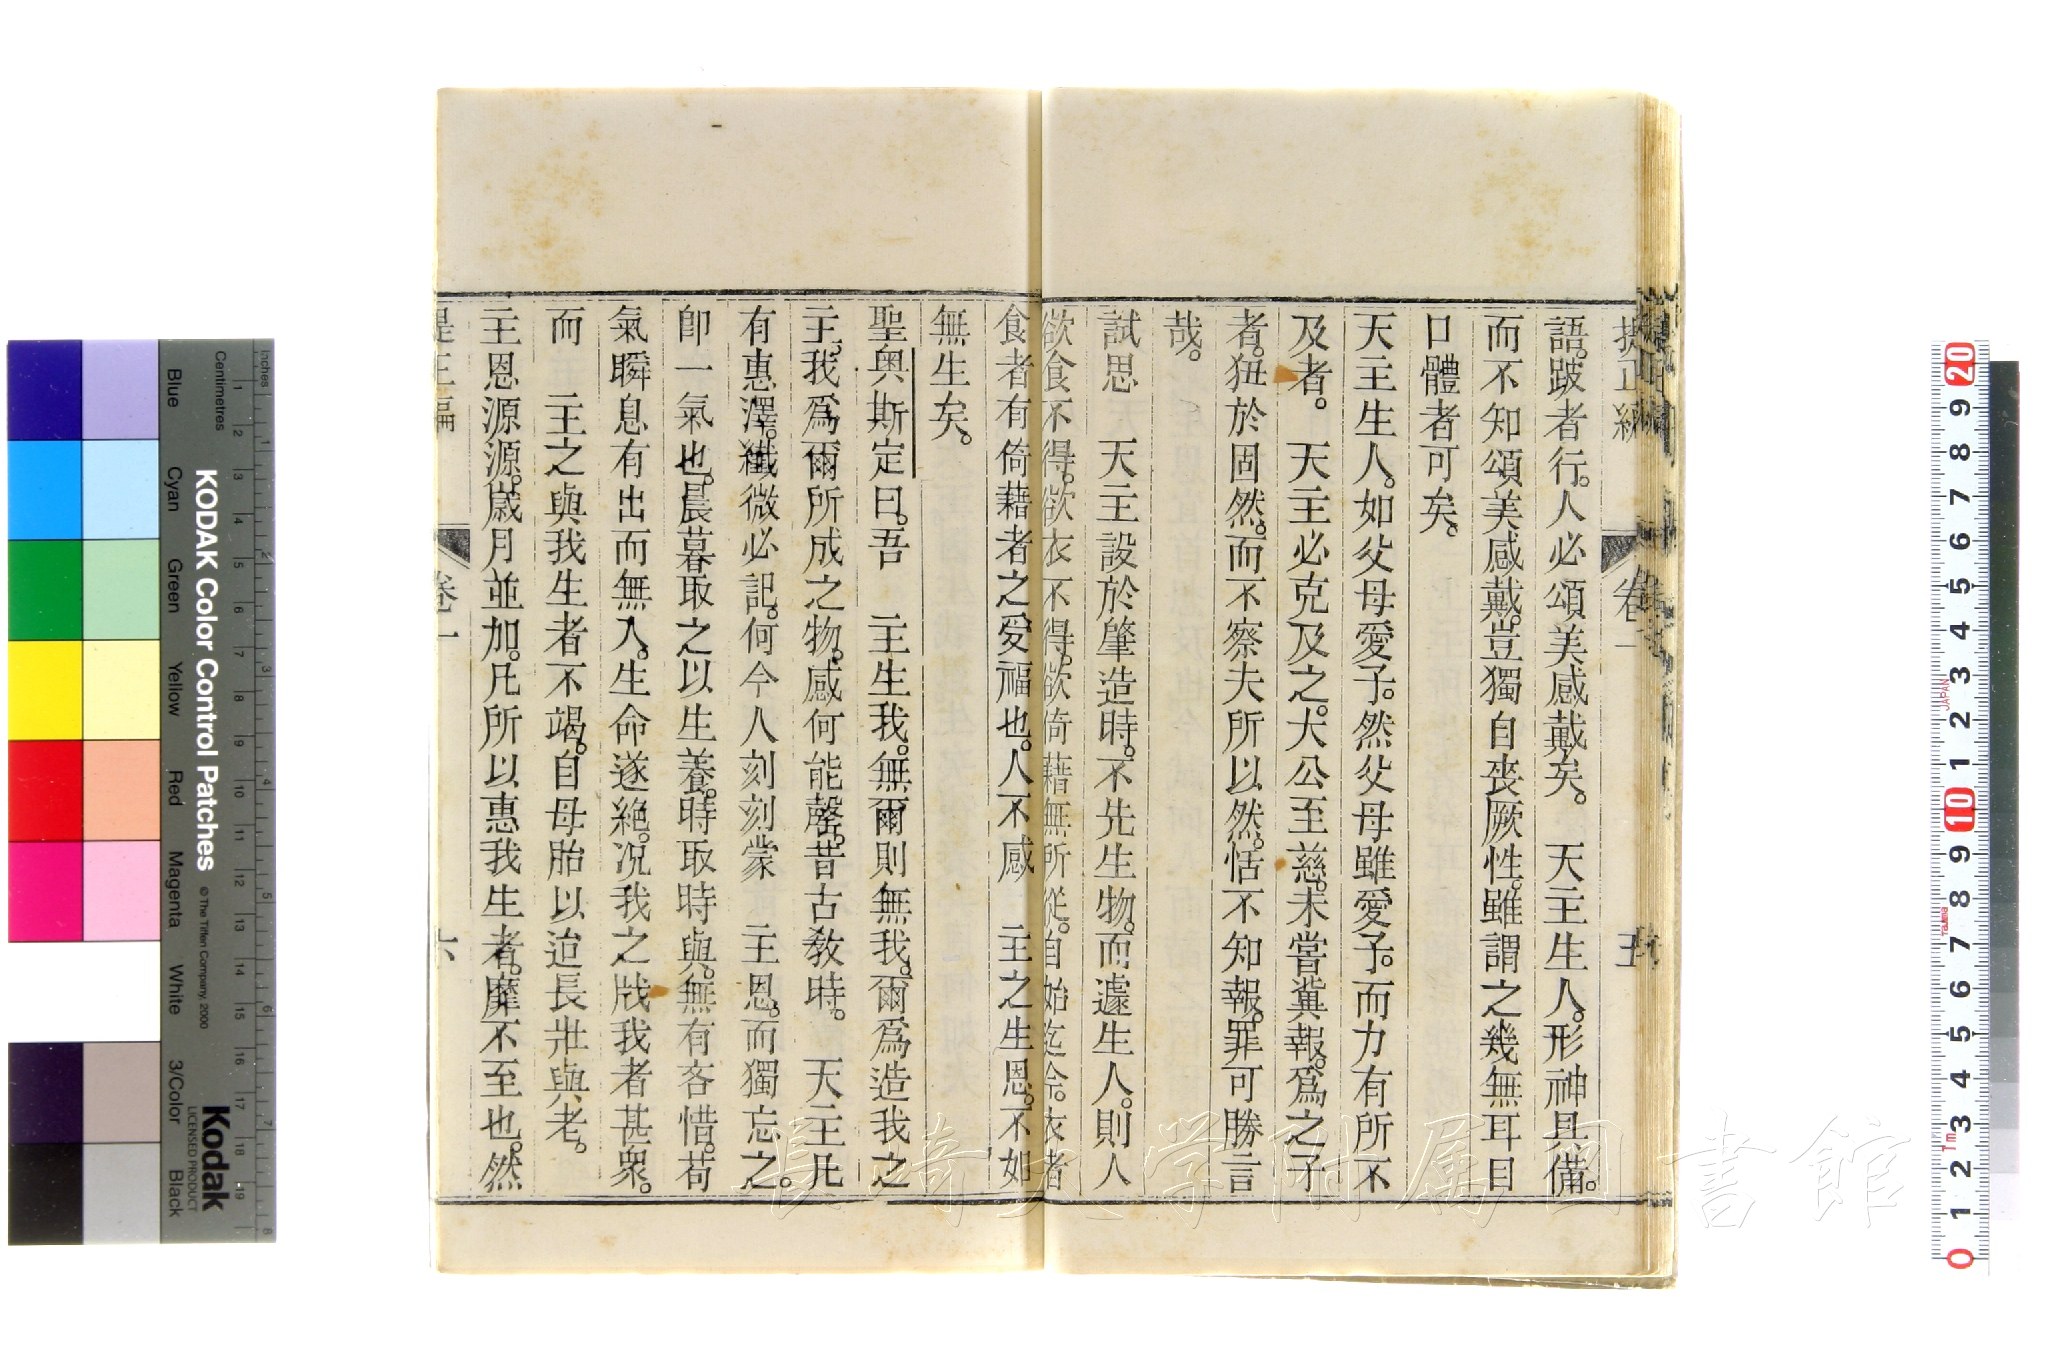 提正編 卷一 五
語。跛者行。人必頌美感戴矣。 天主生人。形神具備。
而不知頌美感戴。豈獨自喪厥性。雖謂之幾無耳目
口體者可矣。
天主生人。如父母愛子。然父母雖愛子。而力有所不
及者。 天主必克及之。大公至慈。未嘗冀報。爲之子
者。狃於固然。而不察夫所以然。恬不知報。罪可勝言
哉。
試思 天主設於肇造時。不先生物。而遽生人。則人
欲食不得。欲衣不得。欲倚藉無所從。自始迄今。衣者
食者有倚藉者之受福也。人不感 主之生恩。不如
無生矣。
聖奥斯定曰。吾 主生我。無爾則無我。爾爲造我之
主。我爲爾所成之物。感何能罄。昔古教時。 天主凡
有惠澤。纖微必記。何今人刻刻蒙 主恩。而獨忘之。
卽一氣也。晨暮取之以生養。時取時與。無有吝惜。苟
氣瞬息有出而無入。生命遂絕。况我之戕我者甚衆。
而 主之與我生者不竭。自母胎以迨長壯與老。
主恩源源。歲月並加。凡所以惠我生者。靡不至也。然
提正編 卷一 六
KODAK Color Control Patches
© The Tiffen Company, 2000
Kodak
LICENSED PRODUCT
Inches
Centimetres
Blue
Cyan
Green
Yellow
Red
Magenta
White
3/Color
Black
長崎大学附属図書館
JAPAN